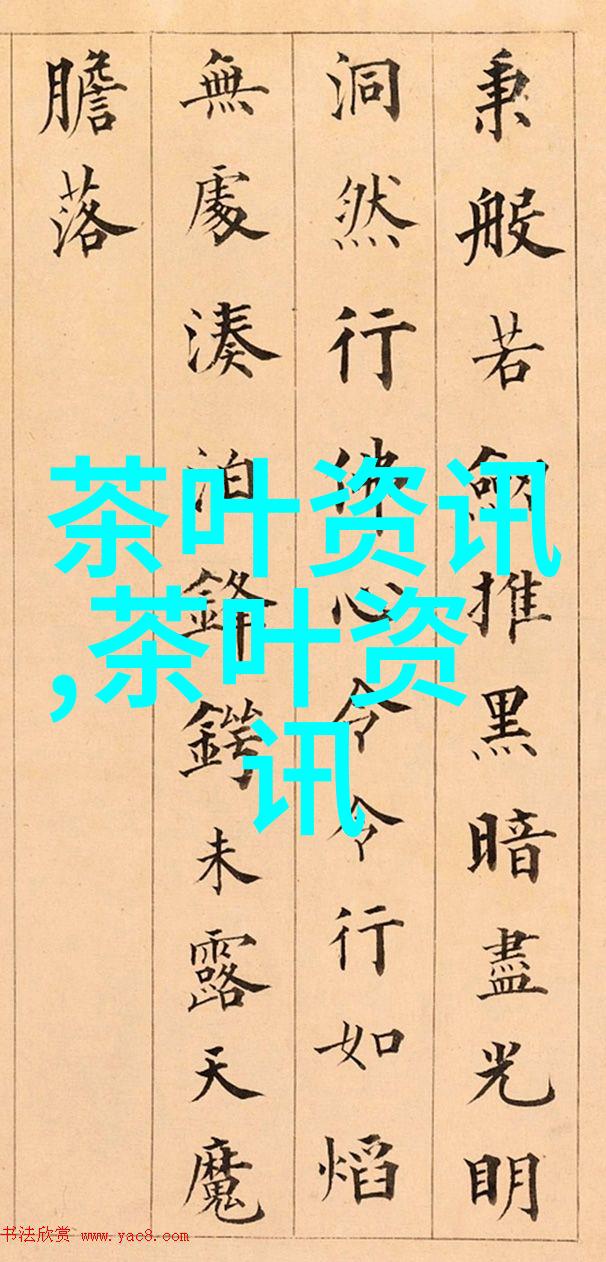 秉般若推黑暗盡光明
洞然行佛心令令行如熖
無處湊泊鋒鍔未露天魔
膽落
茶叶资讯
,茶叶资
讯
书法欣赏 www.yac8.com